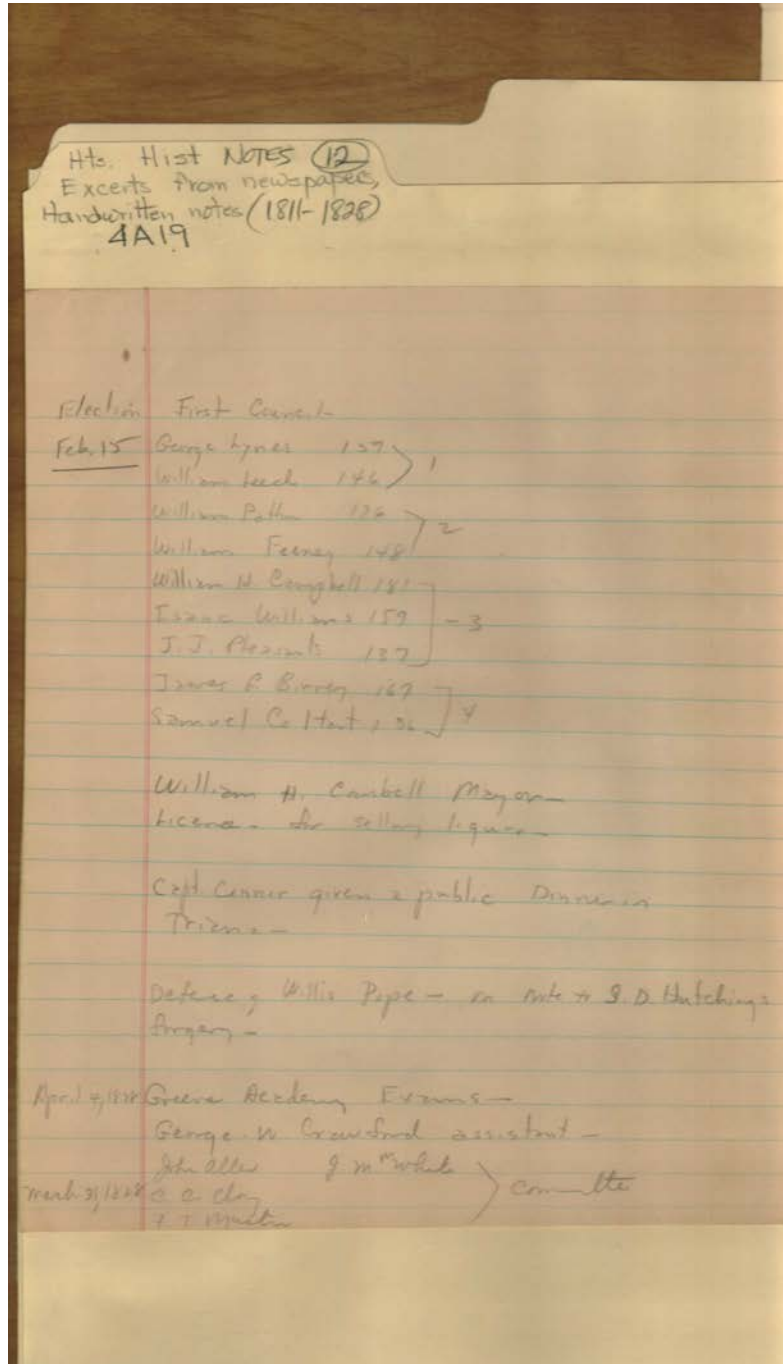 Hts. Hist NOTES (12)
Excerts from newspapers,
Handwritten notes (1811-1828)
4A19
Election First Council
Feb. 15 George Lynes 157
William Leech 146 1
William 136
William Feeney 148 2
William H Campbell 181
Isaac Williams 159 - 3
J.J. Pleasants 137
James G Birney 167
Samuel 4
William H. Cambell Mayor -
Licence - for selling liquor -
Capt. Conner given a public Dinner in
Triana -
Defence of Willis Pope - on note to J. D. Hutchings
forgery -
April 4, 1828 Greene Academy Exams -
George W Crawford assistant -
John Allen J White
March 31, 1828 C C Clay Committe
Martin